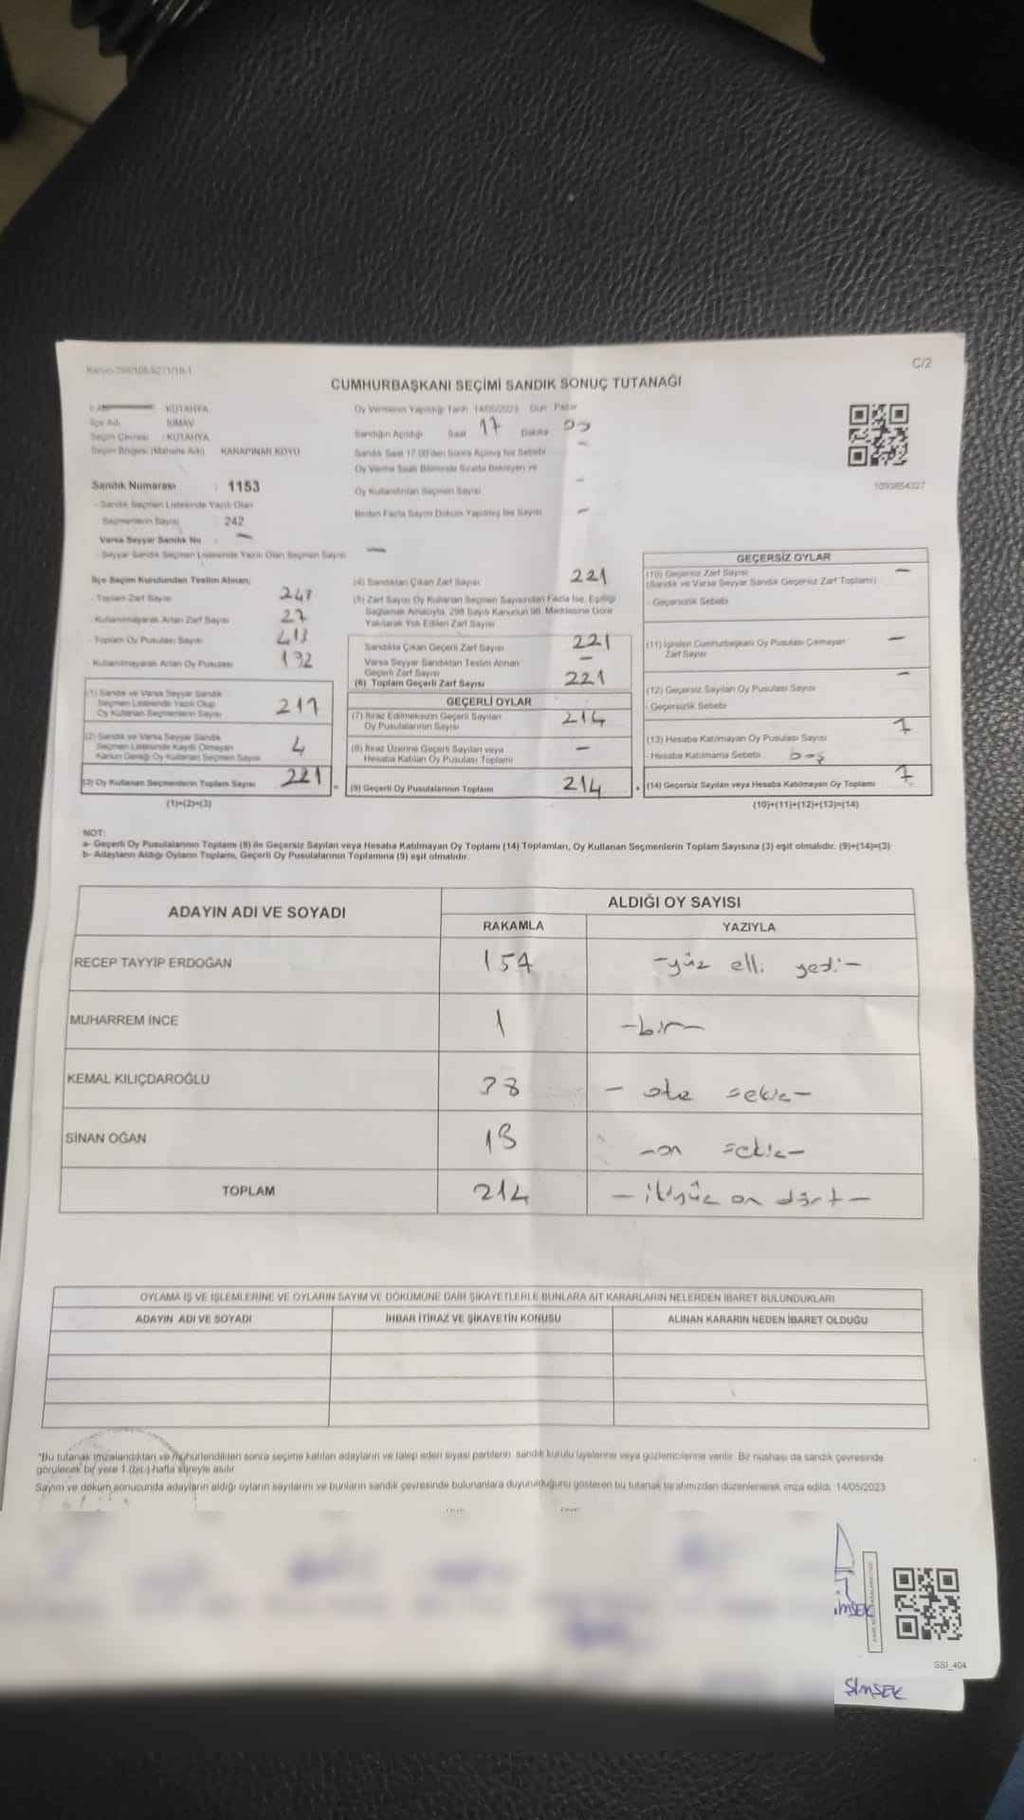 C/2
CUMHURBAŞKANI SEÇİMİ SANDIK SONUÇ TUTANAĞI
KÜTAHYA
İlçe Adı SİMAV
Seçim Çevresi : KÜTAHYA
Seçim Bölgesi (Mahalle Adı) KARAPINAR KÖYÜ
Sandık Numarası : 1153
Sandık Seçmen Listesinde Yazılı Olan
Seçmenlerin Sayısı 242
Varsa Seyyar Sandık No : -
Seyyar Sandık Seçmen Listesinde Yazılı Olan Seçmen Sayısı -
Oy Vermenin Yapıldığı Tarih 14/05/2023 Gün Pazar
Sandığın Açıldığı Saat 17 Dakika
Sandık Saat 17.00'den Sonra Açılmış İse Sebebi -
Oy Verme Saati Bitiminde Sırada Bekleyen ve
Oy Kullandırılan Seçmen Sayısı -
Birden Fazla Sayım Döküm Yapılmış İse Sayısı -
1093854327
İlçe Seçim Kurulundan Teslim Alınan;
- Toplam Zarf Sayısı
- Kullanılmayarak Artan Zarf Sayısı 27
- Toplam Oy Pusulası Sayısı 413
- Kullanılmayarak Artan Oy Pusulası 192
(1) Sandık ve Varsa Seyyar Sandık
Seçmen Listesinde Yazılı Olup
Oy Kullanan Seçmenlerin Sayısı 217
(2) Sandık ve Varsa Seyyar Sandık
Seçmen Listesinde Kayıtlı Olmayan
Kanun Gereği Oy Kullanan Seçmen Sayısı 4
(3) Oy Kullanan Seçmenlerin Toplam Sayısı 221
(1)+(2)=(3)
(4) Sandıktan Çıkan Zarf Sayısı 221
(5) Zarf Sayısı Oy Kullanan Seçmen Sayısından Fazla İse, Eşitliği
Sağlamak Amacıyla, 298 Sayılı Kanunun 98. Maddesine Göre
Yakılarak Yok Edilen Zarf Sayısı
Sandıkta Çıkan Geçerli Zarf Sayısı 221
Varsa Seyyar Sandıktan Teslim Alınan
Geçerli Zarf Sayısı -
(6) Toplam Geçerli Zarf Sayısı 221
GEÇERLİ OYLAR
(7) İtiraz Edilmeksizin Geçerli Sayılan
Oy Pusulalarının Sayısı 214
(8) İtiraz Üzerine Geçerli Sayılan veya
Hesaba Katılan Oy Pusulası Toplamı -
(9) Geçerli Oy Pusulalarının Toplamı 214
GEÇERSİZ OYLAR
(10) Geçersiz Zarf Sayısı -
(Sandık ve Varsa Seyyar Sandık Geçersiz Zarf Toplamı)
- Geçersizlik Sebebi
(11) İçinden Cumhurbaşkanı Oy Pusulası Çıkmayan -
Zarf Sayısı
(12) Geçersiz Sayılan Oy Pusulası Sayısı -
- Geçersizlik Sebebi
(13) Hesaba Katılmayan Oy Pusulası Sayısı 7
- Hesaba Katılmama Sebebi boş
(14) Geçersiz Sayılan veya Hesaba Katılmayan Oy Toplamı 7
(10)+(11)+(12)+(13)=(14)
NOT:
a- Geçerli Oy Pusulalarının Toplamı (9) ile Geçersiz Sayılan veya Hesaba Katılmayan Oy Toplamı (14) Toplamları, Oy Kullanan Seçmenlerin Toplam Sayısına (3) eşit olmalıdır. (9)+(14)=(3)
b- Adayların Aldığı Oyların Toplamı, Geçerli Oy Pusulalarının Toplamına (9) eşit olmalıdır.
ADAYIN ADI VE SOYADI
ALDIĞI OY SAYISI
RAKAMLA YAZIYLA
RECEP TAYYİP ERDOĞAN 157 -yüz elli yedi-
MUHARREM İNCE 1 -bir-
KEMAL KILIÇDAROĞLU 38 - otuz sekiz-
SİNAN OĞAN 18 -on sekiz-
TOPLAM 214 - ikiyüz on dört -
OYLAMA İŞ VE İŞLEMLERİNE VE OYLARIN SAYIM VE DÖKÜMÜNE DAİR ŞİKAYETLERLE BUNLARA AİT KARARLARIN NELERDEN İBARET BULUNDUKLARI
ADAYIN ADI VE SOYADI İHBAR İTİRAZ VE ŞİKAYETİN KONUSU ALINAN KARARIN NEDEN İBARET OLDUĞU
*Bu tutanak imzalandıktan ve mühürlendikten sonra seçime katılan adayların ve talep eden siyasi partilerin sandık kurulu üyelerine veya gözlemcilerine verilir. Bir nüshası da sandık çevresinde
görülecek bir yere 1 (bir) hafta süreyle asılır.
Sayım ve döküm sonucunda adayların aldığı oyların sayılarını ve bunların sandık çevresinde bulunanlara duyurulduğunu gösteren bu tutanak tarafımızdan düzenlenerek imza edildi. 14/05/2023
SSI_404
ŞİMŞEK